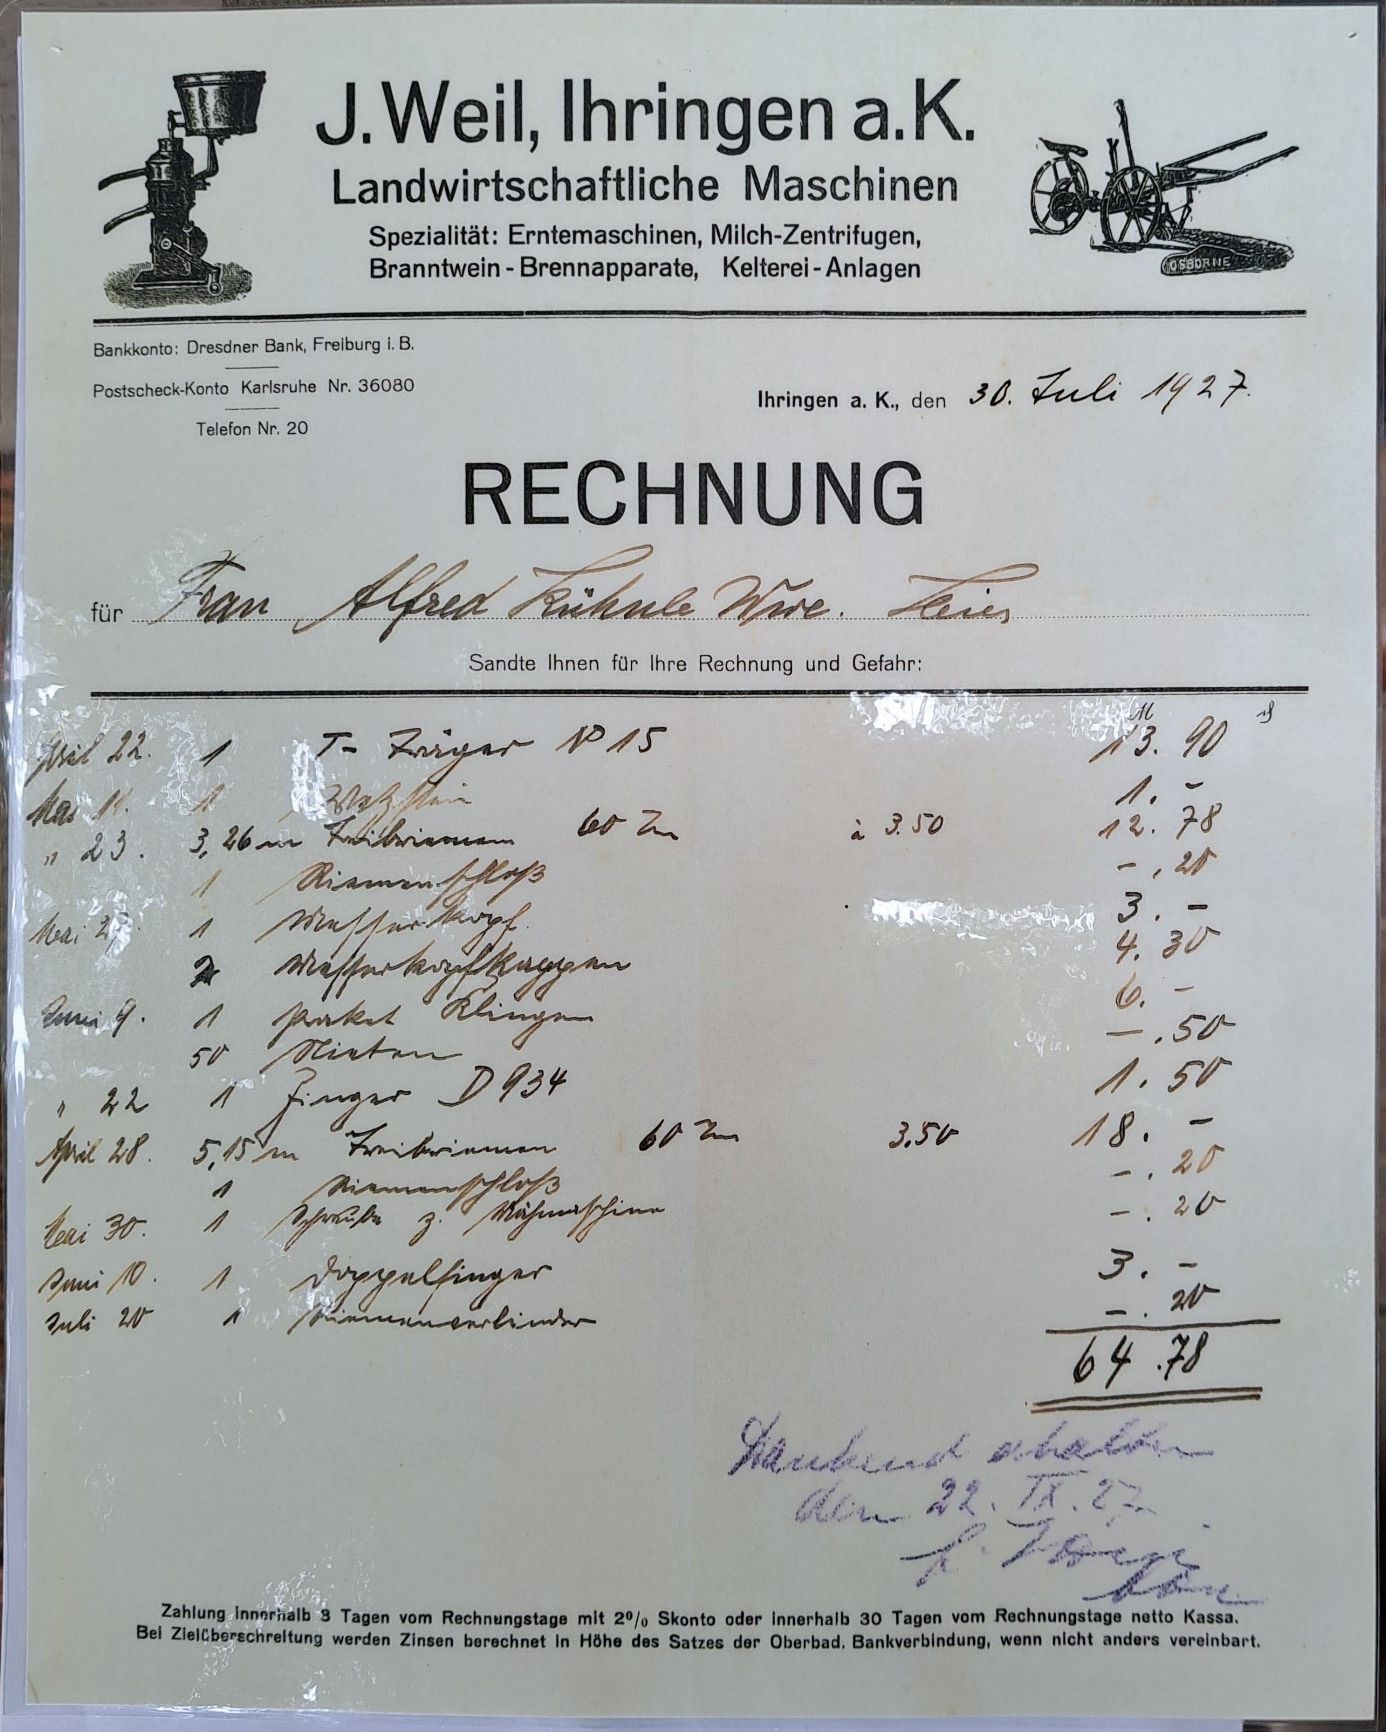 J. Weil, Ihringen a. K.
Landwirtschaftliche Maschinen
Spezialität: Erntemaschinen, Milch-Zentrifugen,
Branntwein-Brennapparate, Kelterei-Anlagen
OSBORNE
Bankkonto: Dresdner Bank, Freiburg i. B.
Postscheck-Konto Karlsruhe Nr. 36080
Telefon Nr. 20
Ihringen a. K., den 30. Juli 1927.
RECHNUNG
für Frau Alfred Kühnle Wwe.
Sandte Ihnen für Ihre Rechnung und Gefahr:
M
April 22. 1 T-Träger NP 15 13.90
1 Wetzstein 1.-
" 23. 3,26 m Treibriemen 60 à 3.50 12.78
1 Riemenschloß -.20
Mai 1 Messerkopf 3.-
2 Messerkopfkappen 4.30
Juni 9. 1 Paket Klingen 6.-
50 Nieten -.50
" 22 1 Finger D 934 1.50
April 28. 5,15 m Treibriemen 60 3.50 18.-
1 Riemenschloß -.20
Mai 30. 1 Schraube z. Mähmaschine -.20
Juni 10. 1 Doppelfinger 3.-
Juli 20 1 Riemenverbinder -.20
64.78
Dankend erhalten
den 22. IX. 27.
Zahlung innerhalb 3 Tagen vom Rechnungstage mit 2% Skonto oder innerhalb 30 Tagen vom Rechnungstage netto Kassa.
Bei Zielüberschreitung werden Zinsen berechnet in Höhe des Satzes der Oberbad. Bankverbindung, wenn nicht anders vereinbart.